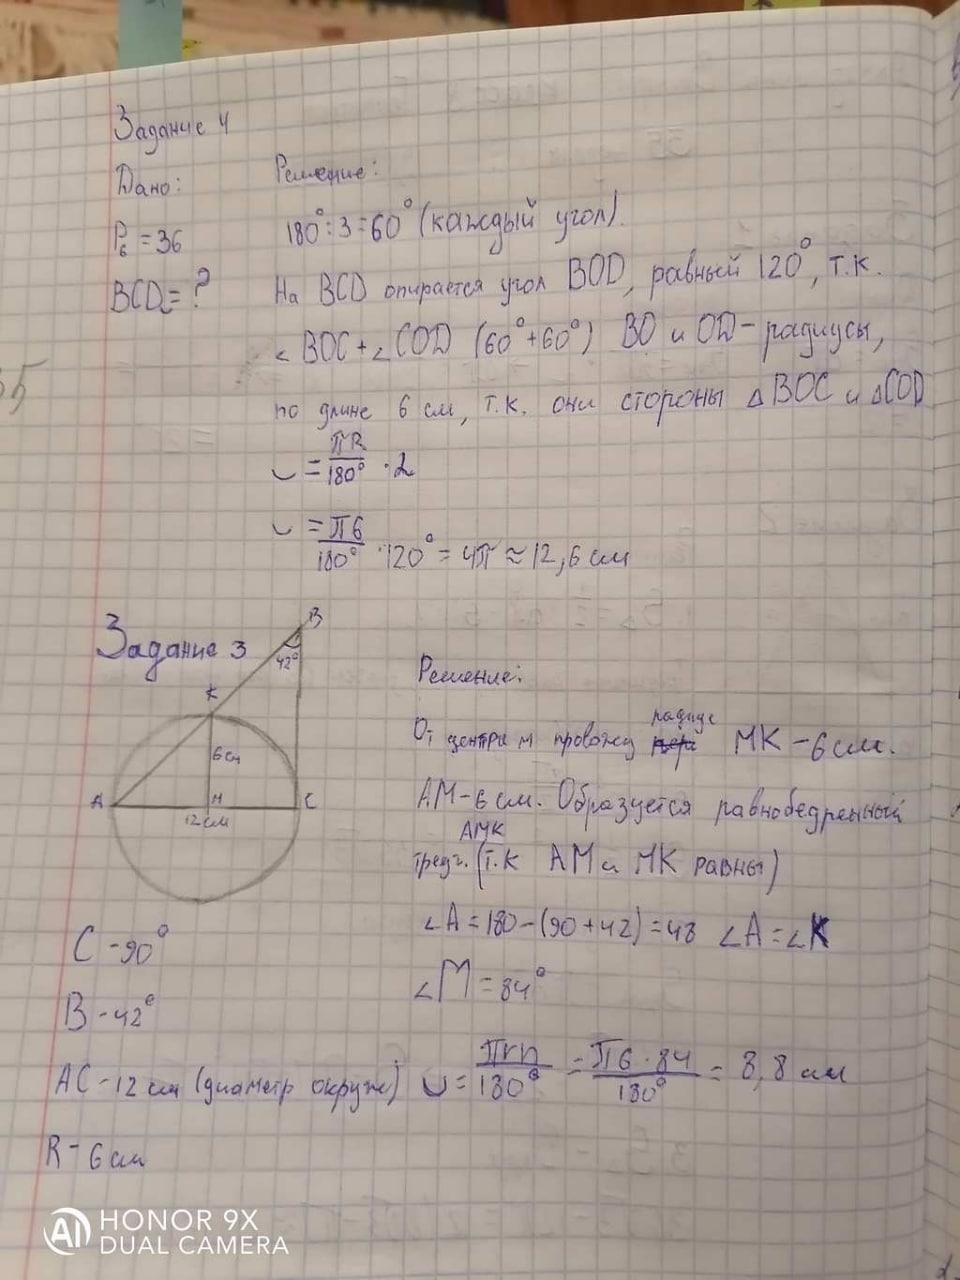 Задание 4
Дано:
Решение:
P₆ = 36
180° : 3 = 60° (каждый угол).
BCD = ?
На BCD опирается угол BOD, равный 120°, т.к.
∠ BOC + ∠ COD (60° + 60°) BO и OD - радиусы,
по длине 6 см, т.к. они стороны Δ BOC и Δ COD
◡ = πR/180° · 2
◡ = π6/180° · 120° = 4π ≈ 12,6 см
Задание 3
B
42°
K
6 см
A
M
C
12 см
Решение:
От центра м провожу радиус MK - 6 см.
AM - 6 см. Образуется равнобедренный
треуг. AMK (т.к AM и MK равны)
∠A = 180 - (90 + 42) = 48 ∠A = ∠K
∠M = 84°
C - 90°
B - 42°
AC - 12 см (диаметр окруж)
◡ = πrn/180° = π6 · 84/180° = 8,8 см
R - 6 см
HONOR 9X
DUAL CAMERA